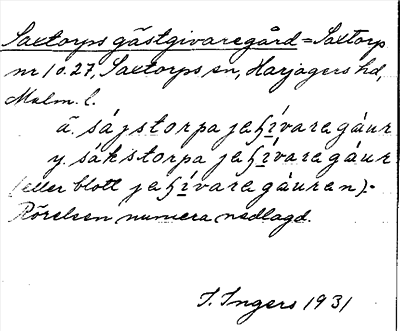 Saxtorps gästgivaregård = Saxtorp
nr 1 o. 27, Saxtorps sn, Harjagers hd,
Malm. l.
ä. sájstorpa jaʃívaragáur
y. sákstorpa jaʃívaragáur
(eller blott jaʃívaragáuren).-
Rörelsen numera nedlagd.
I. Ingers 1931